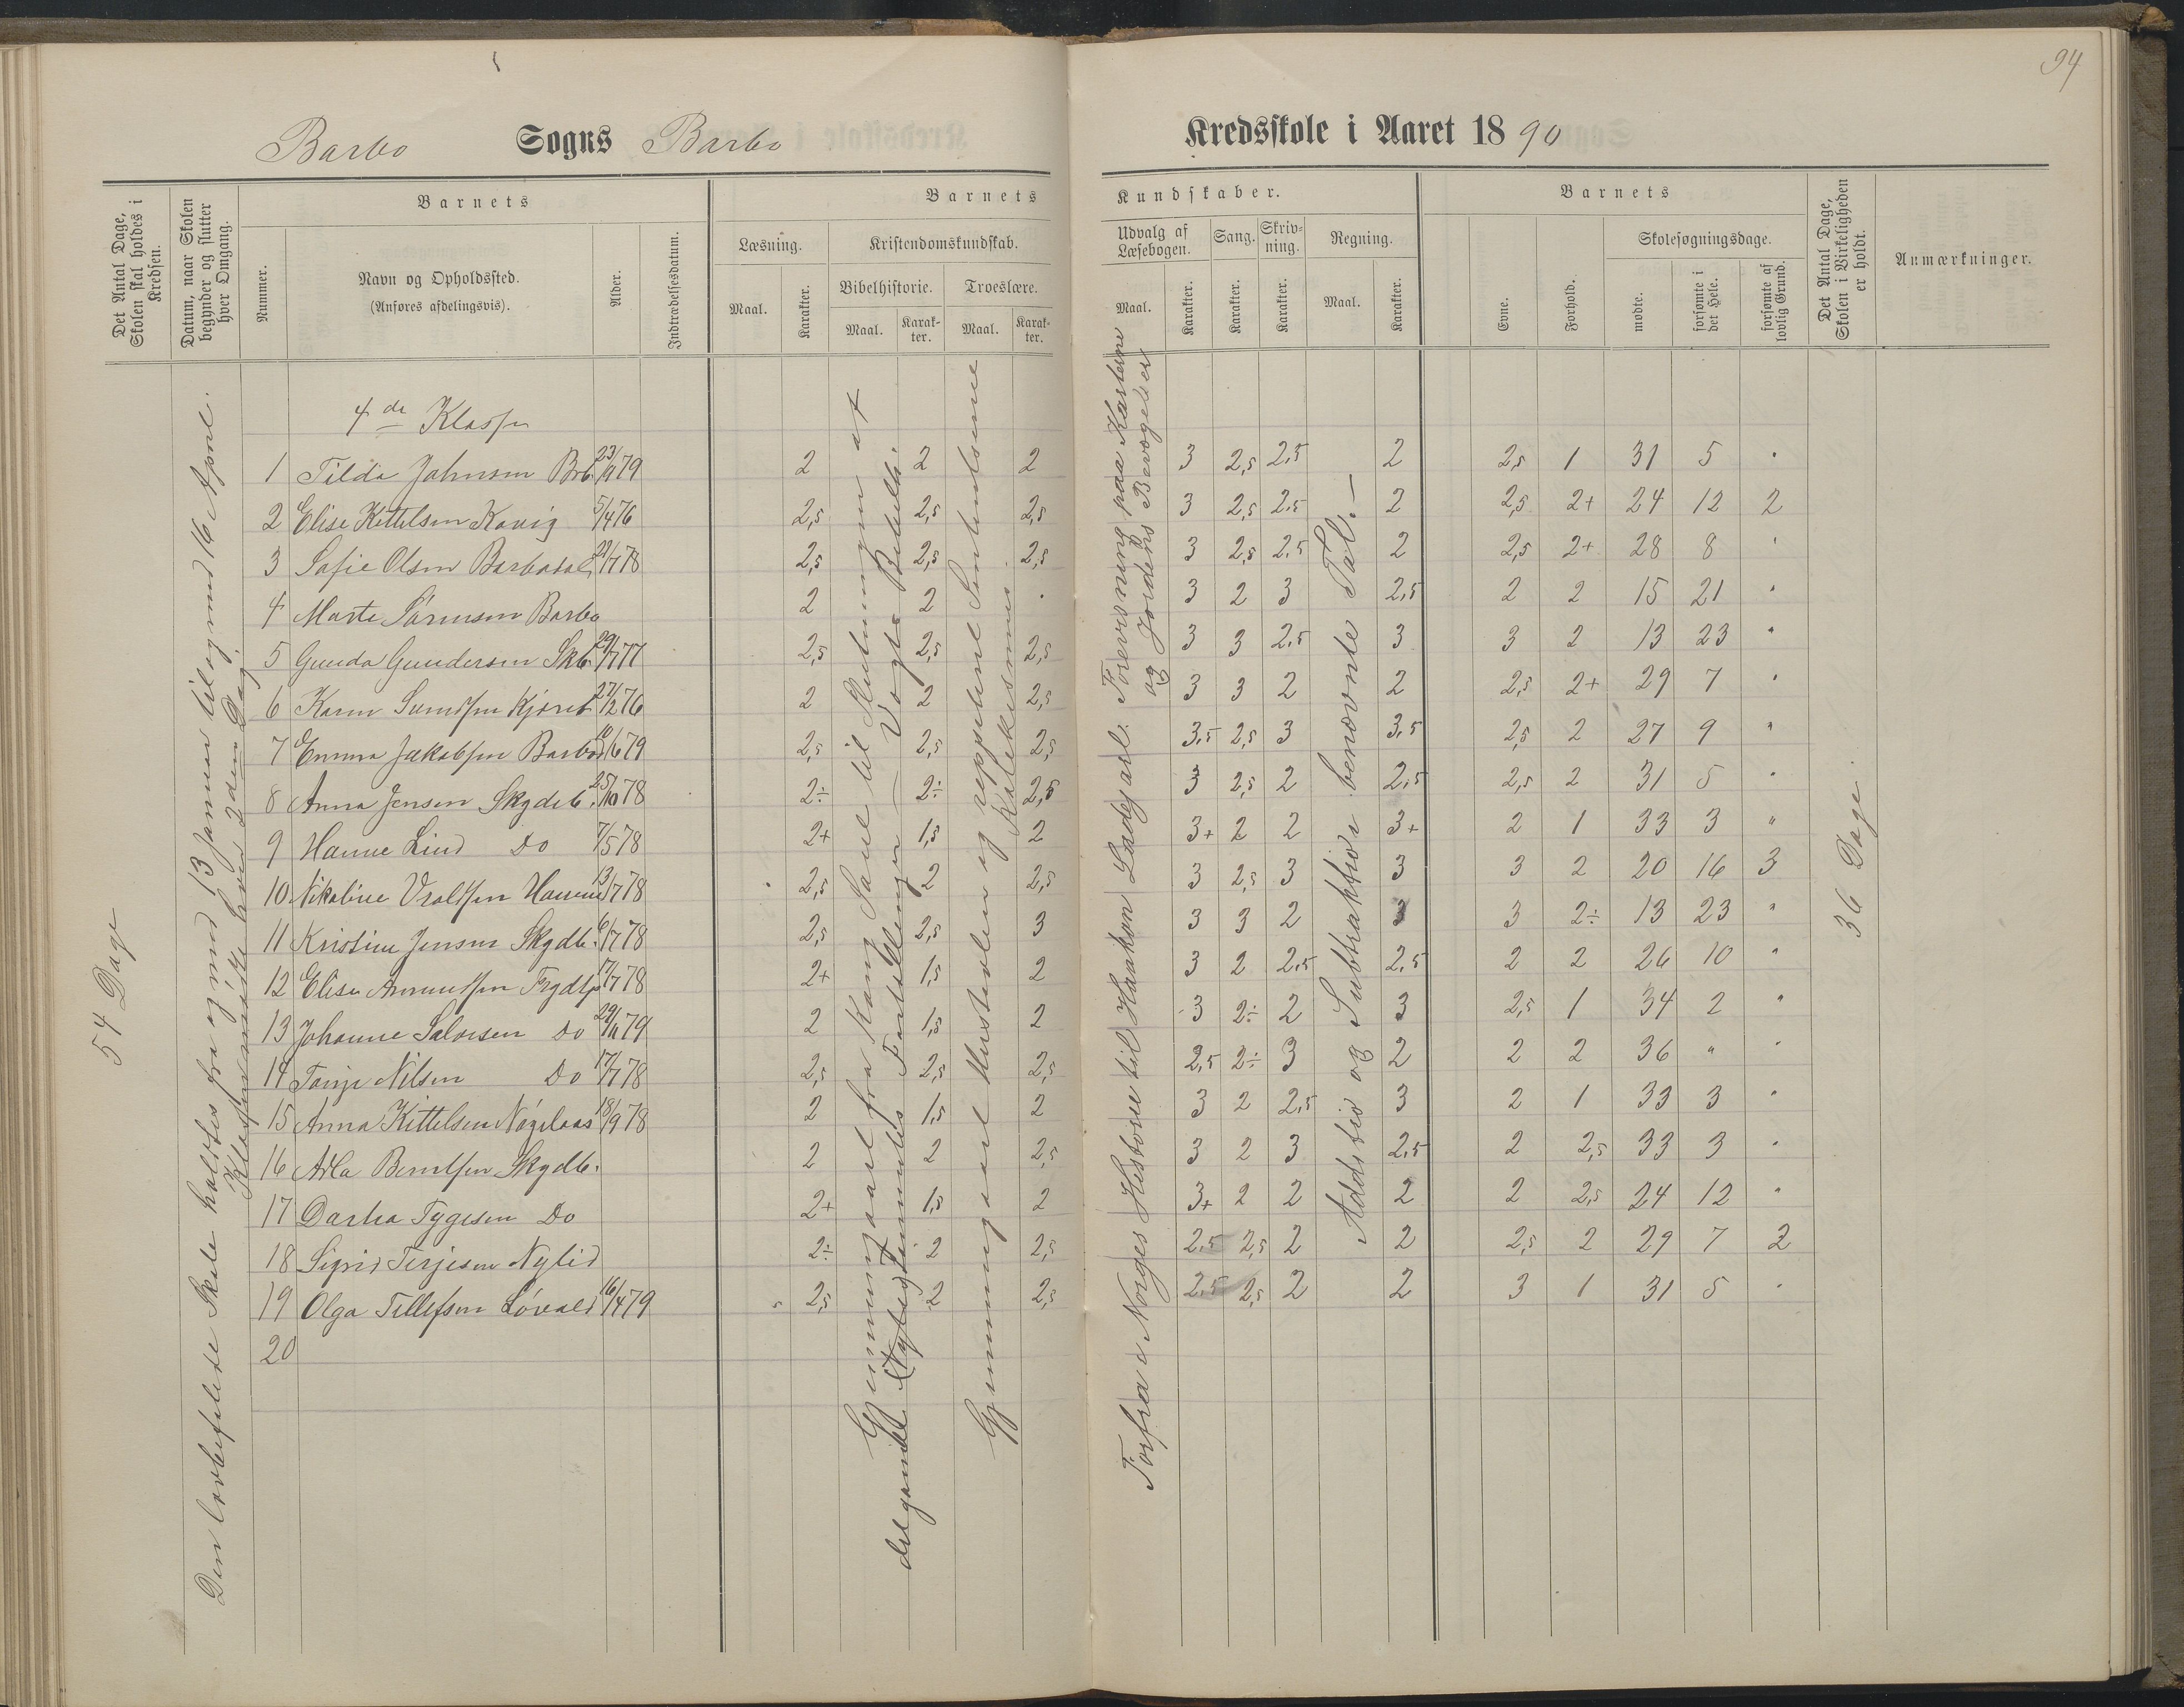 94
Barbo Sogns Barbo Kredsskole i Aaret 1890
Det Antal Dage, Skolen skal holdes i Kredsen.
Datum, naar Skolen begynder og slutter hver Omgang.
Barnets
Nummer.
Navn og Opholdssted.
(Anføres afdelingsvis).
Alder.
Indtrædelsesdatum.
Barnets Kundskaber.
Læsning.
Maal.
Karakter.
Kristendomskundskab.
Bibelhistorie.
Maal.
Karakter.
Troeslære.
Maal.
Karakter.
Udvalg af Læsebogen.
Maal.
Karakter.
Sang.
Karakter.
Skrivning.
Karakter.
Regning.
Maal.
Karakter.
Barnets
Evne.
Forhold.
Skolesøgningsdage.
mødte.
forsømte i det Hele.
forsømte af lovlig Grund.
Det Antal Dage, Skolen i Virkeligheden er holdt.
Anmærkninger.
54 Dage
Den lovbefalede Skole holdtes fra og med 13 Januar til og med 16 April.
Klassen mødte hver 2den Dag.
4de Klasse
1 Tilda Johnsen Brb. 23/9 79 2 2 2 3 2,5 2,5 2 2,5 1 31 5 "
2 Elise Kittelsen Kovig 5/4 76 2,5 2,5 2,5 3 2,5 2,5 2 2,5 2+ 24 12 2
3 Sofie Olsen Barbodal 22/7 78 2,5 2,5 2,5 3 2,5 2,5 2 2,5 2+ 28 8 "
4 Marte Sørensen Barbo 2 2 " 3 2 3 2,5 2 2 15 21 "
5 Gunda Gundersen Skb. 29/7 77 2,5 2,5 2,5 3 3 2,5 3 3 2 13 23 "
6 Karen 27/2 76 2 2 2,5 3 3 2 2 2,5 2+ 29 7 "
7 Emma Jakobsen Barbod 10/6 79 2,5 2,5 2,5 3,5 2,5 3 3,5 2,5 2 27 9 "
8 Anna Jensen Skydeb. 25/10 78 2÷ 2÷ 2,5 3 2,5 2 2,5 2,5 2 31 5 "
9 Hanne Lind Do 7/5 78 2+ 1,5 2 3+ 2 2 3+ 2 1 33 3 "
10 Nikoline Vraldsen 13/7 78 2,5 2 2,5 3 2,5 3 3 3 2 20 16 3
11 Kristine Jensen Skydb. 6/7 78 2,5 2,5 3 3 3 2 3 3 2÷ 13 23 "
12 Elise 17/7 78 2+ 1,5 2 3 2 2,5 2,5 2 2 26 10 "
13 Johanne Salvesen Do 29/11 79 2 1,5 2 3 2÷ 2 3 2,5 1 34 2 "
14 Nilsen Do 17/7 78 2,5 2,5 2,5 2,5 2÷ 3 2 2 2 36 " "
15 Anna Kittelsen 18/9 78 2 1,5 2 3 2 2,5 3 2 1 33 3 "
16 Berntsen Skydb. 2 2 2,5 3 2 3 2,5 2 2,5 33 3 "
17 Tygesen Do 2+ 1,5 2 3+ 2 2 2 2 2,5 24 12 "
18 Sigrid Terjesen Nylid 2÷ 2 2,5 2,5 2,5 2 2 2,5 2 29 7 2
19 Olga Tellefsen Løvald 16/4 79 2,5 2 2,5 2,5 2,5 2 2 3 1 31 5 "
20
Gjennemgaaet fra Kong Saul til Slutningen af
det gamle Testamentes Fortællinger — Vogts Bibelhi.
Gjennemgaaet Hustavlen og repeteret
Katekismus.
Forfra i Norges Historie til Haakon Ladejarl. Forevisning paa Karterne
og Jordens Bevægelser
Addition og Subtraktion benævnte Tal. —
36 Dage.